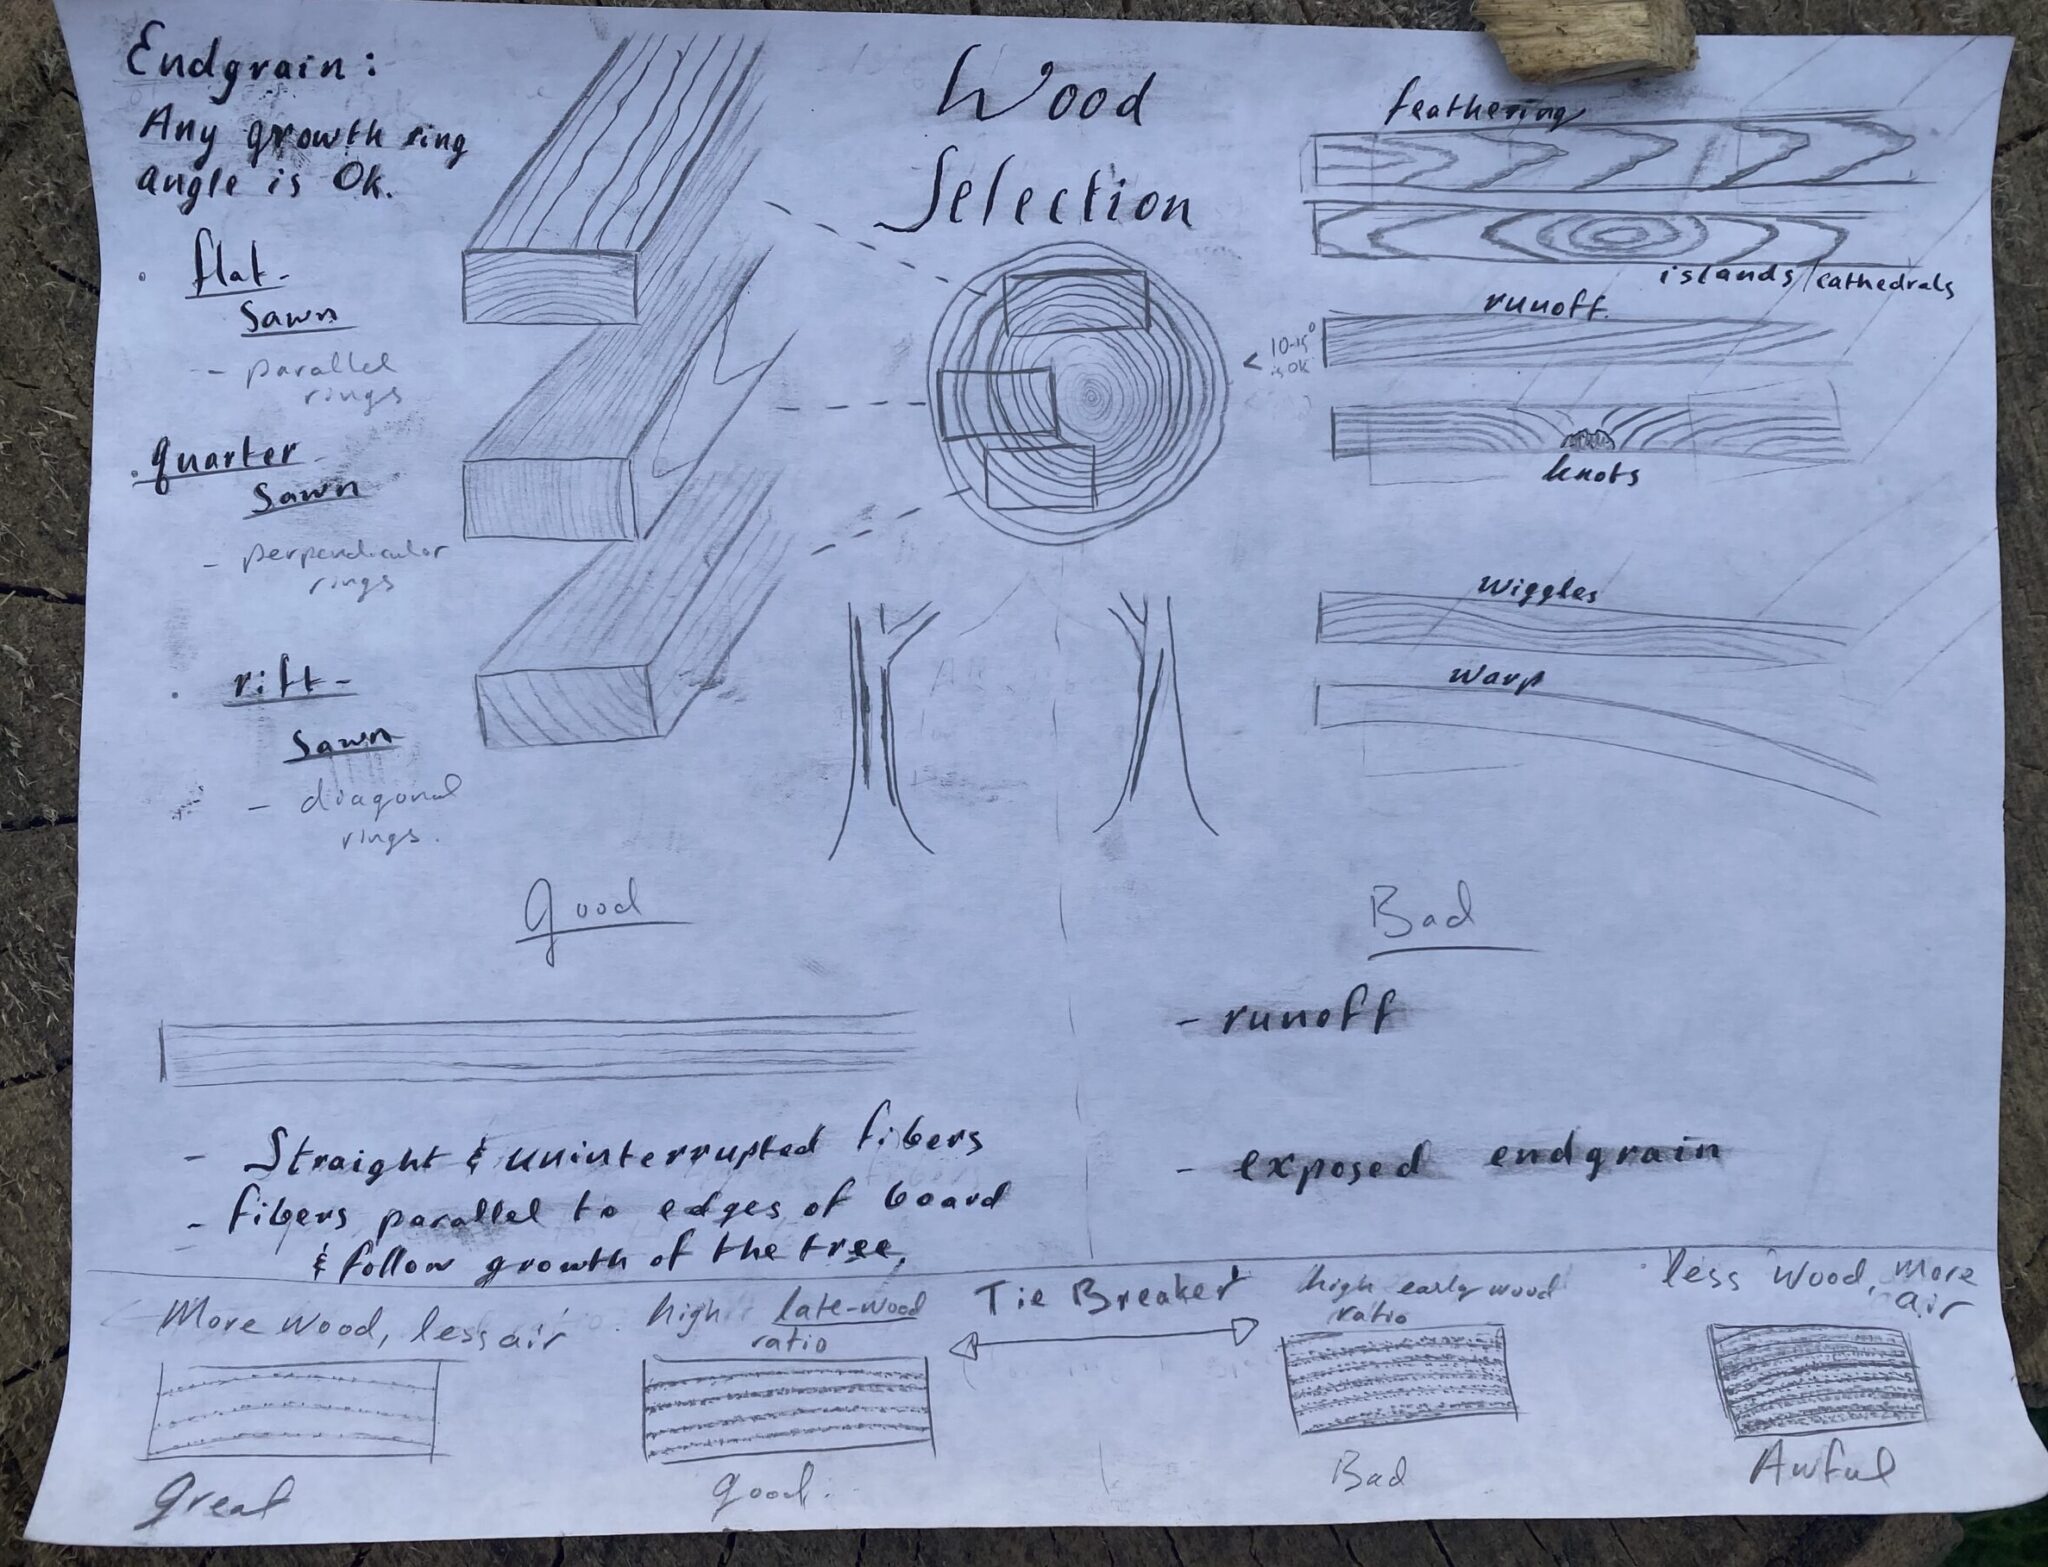 Wood
Selection
Endgrain:
Any growth ring
angle is Ok.
. flat-
sawn
- parallel
rings
. quarter-
sawn
- perpendicular
rings
. rift-
sawn
- diagonal
rings.
feathering
islands/cathedrals
runoff.
< 10-15°
is OK
knots
wiggles
warp
Good
- Straight & uninterrupted fibers
- fibers parallel to edges of board
& follow growth of the tree.
Bad
- runoff
- exposed endgrain
Tie Breaker
More wood, less air
Great
high late-wood
ratio
good.
high earlywood
ratio
Bad
less wood, more
air
Awful